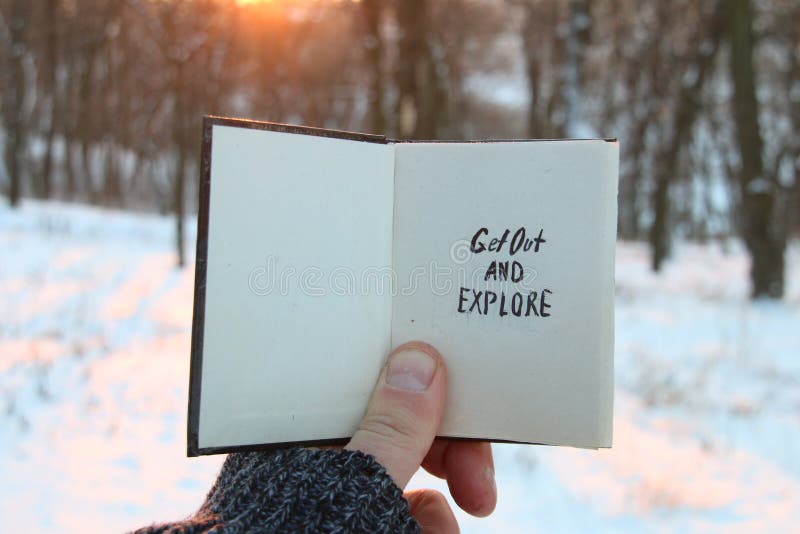 Get Out
AND
EXPLORE
dreamstime